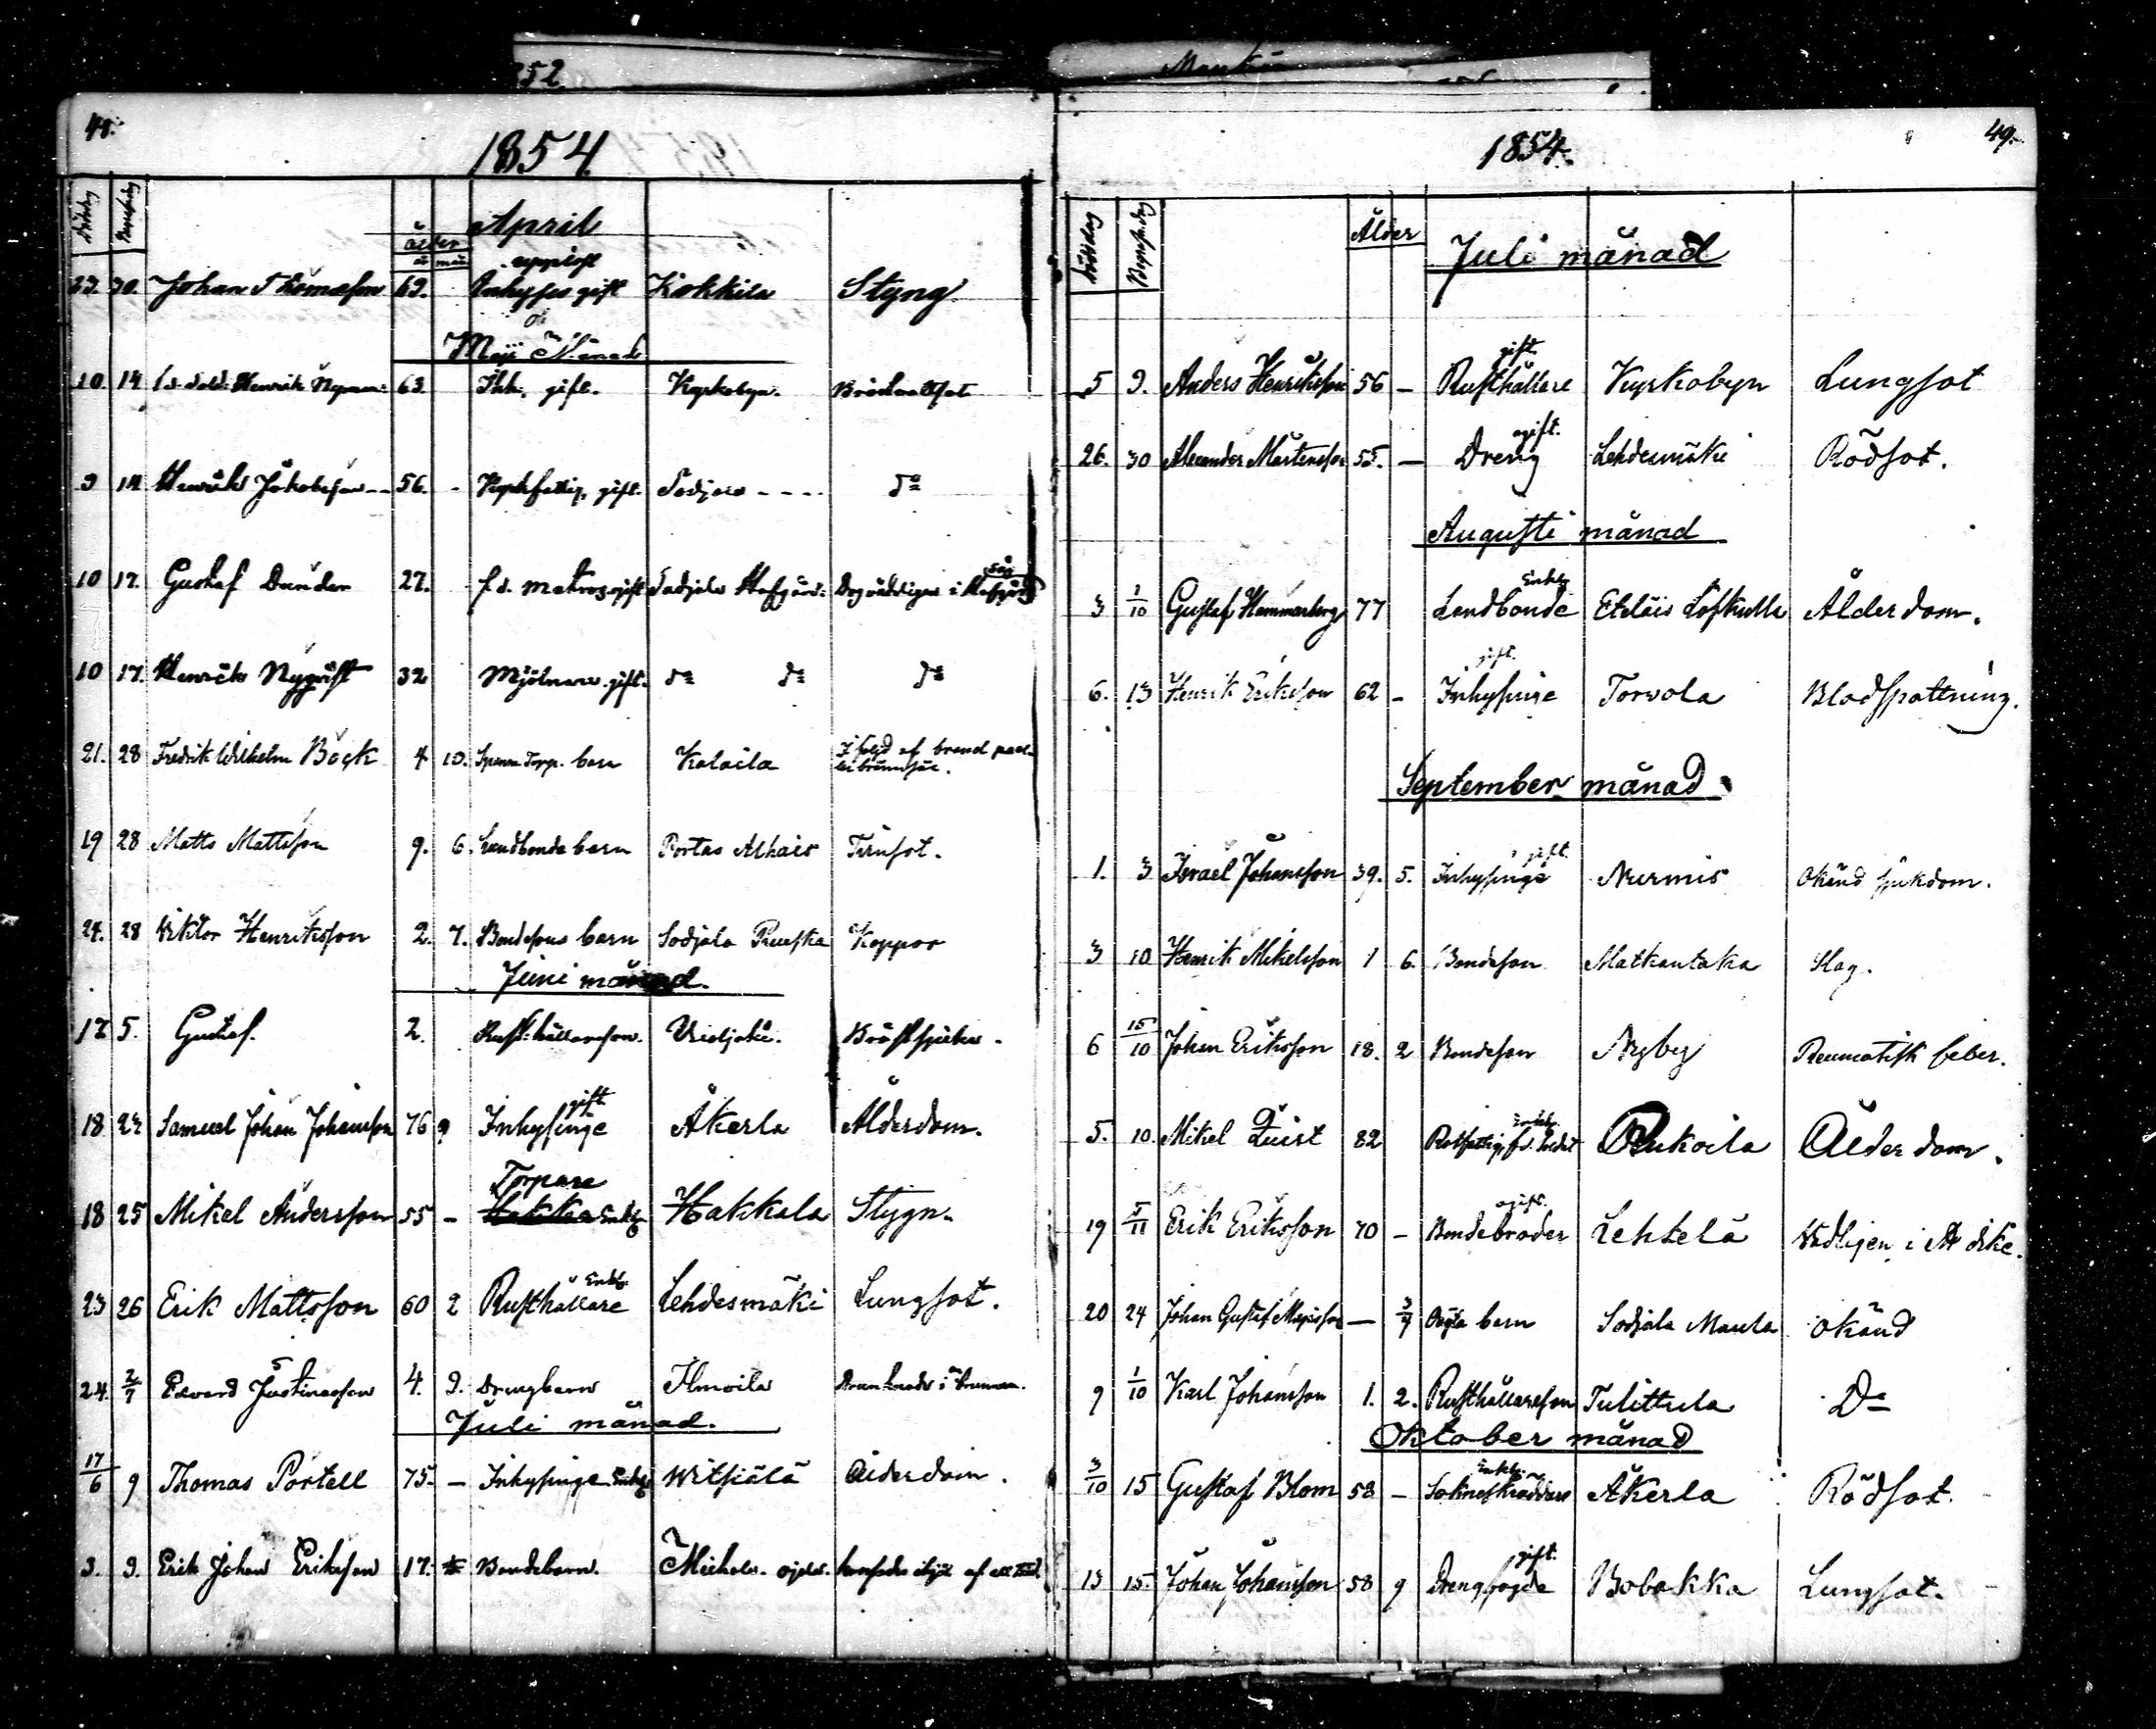 252
48.
1854.
Dödsdag Begrafndag
April
ålder
år mån
23. 30. Johan Thomasson 69. Inhyses gift Kokkila Styng
Maji Månad
10. 14 f.d. Sold. Henrik Nyman 63. Inh. gift. Kyrkobyn.
9 14 Henrik Jakobsson 56. - Kyrkfattig, gift. Sodjala dº
10 17. Gustaf Dunder 27. f.d. matros, gift Sadjala Hofgård
10 17. Henrik Nyqvist 32 Mjölnare. gift. dº dº dº
21. 28 Fredrik Wilhelm Böck 4 10. Torp. barn Kalaila I följd af brand
19 28 Matts Mattsson 9. 6. Landbonde barn Portas Alhais Tvinsot.
24. 28 Viktor Henriksson 2. 7. Bondesons barn Sodjala Pruska Koppor
Juni månad.
17 5. Gustaf. 2. Rusthållareson. Bröstsjuka.
gift
18 24 Samuel Johan Johansson 76 9 Inhysinge Åkerla Ålderdom.
Torpare
18 25 Mikel Andersson 55 - Enkl. Hakkala Stygn.
Enkl.
23 26 Erik Mattsson 60 2 Rusthållare Lehdesmäki Lungsot.
24. 2/7 Edvard Justinasson 4. 9. Drengbarn Ilmoila Drunknade i brunnen.
Juli månad.
17/6 9 Thomas Portell 75. - Inhysinge Enkl. Witsiälä Ålderdom.
3. 9. Erik Johan Eriksson 17. Bondebarn.
49.
1854.
Dödsdag Begrafndag
Ålder
Juli månad
gift.
5 9. Anders Henriksson 56 - Rusthållare Kyrkobyn Lungsot
ogift.
26. 30 Alexander Mårtensson 55. - Dreng Lehdesmäki Rödsot.
Augusti månad
Enkl.
3 1/10 Gustaf Hammarberg 77 Landbonde Eteläis Löfkulla Ålderdom.
gift.
6. 13 Henrik Eriksson 62 - Inhysinge Torvola Blodspottning.
September månad
gift.
1. 3 Israel Johansson 39. 5. Inhysinge Nurmis Okänd sjukdom.
3 10 Henrik Mikelsson 1 6. Bondeson Matkantaka Slag.
6 15/10 Johan Eriksson 18. 2 Bondeson Nyby Reumatisk feber.
Enkl.
5. 10. Mikel Quist 82 Rotfattig, f.d. Soldat Rukoila Ålderdom.
ogift.
19 5/11 Erik Eriksson 70 - Bondebroder Lehtelä Vådligen i ett dike.
20 24 Johan Gustaf Majasson — 3/7 Oägta barn Sodjala Maula okänd
9 1/10 Karl Johansson 1. 2. Rusthållareson Tulittula Dº
Oktober månad
Enkl.
3/10 15 Gustaf Blom 58 - Sockneskräddare Åkerla Rödsot.
gift.
13 15. Johan Johansson 58 9 Drengfogde Bobakka Lungsot.